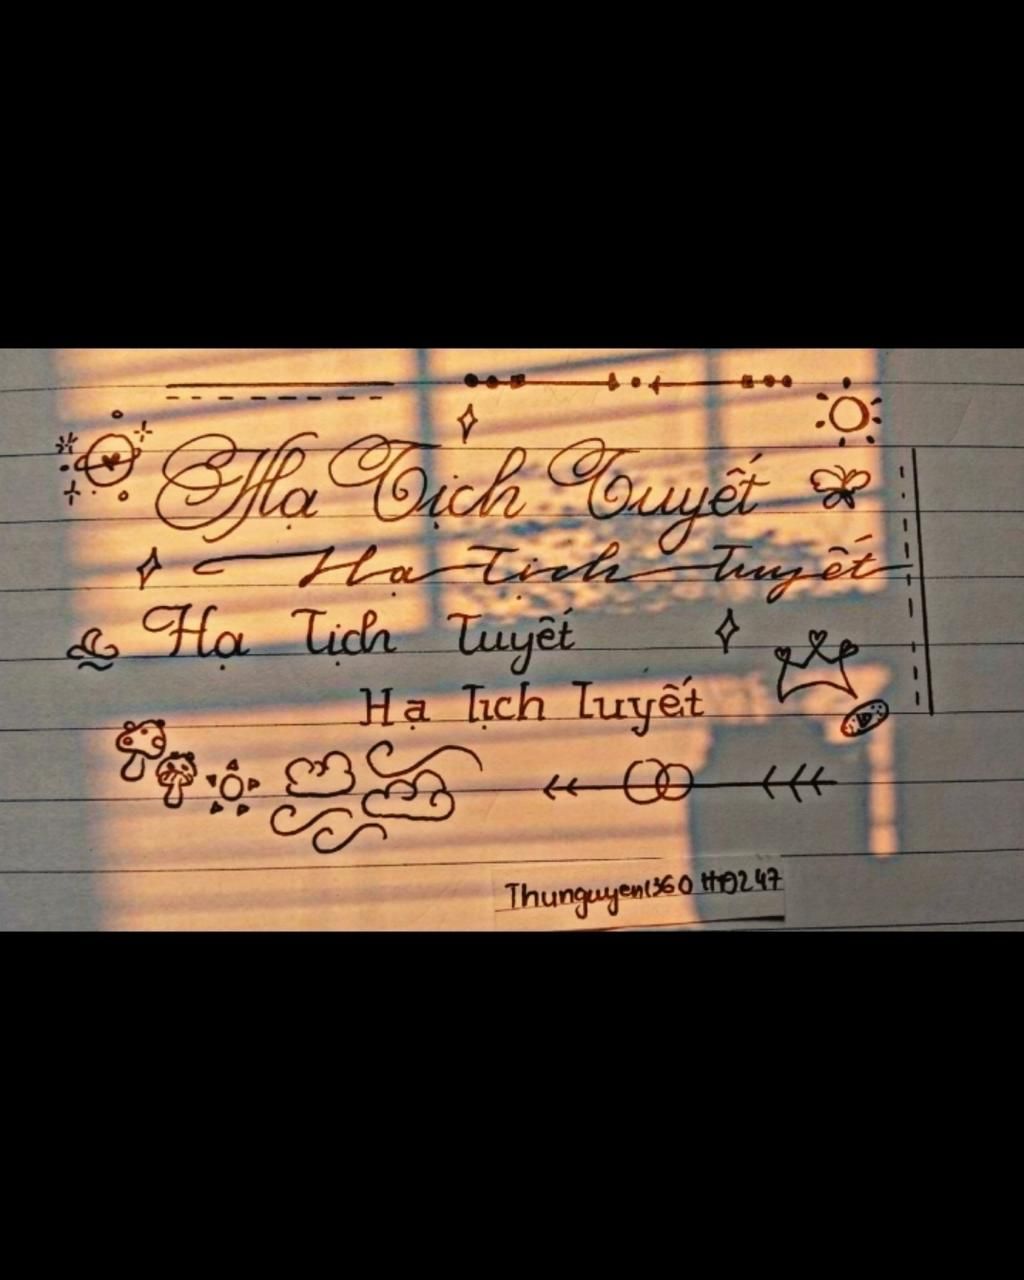 Hạ Tịch Tuyết
Hạ Tịch Tuyết
Hạ Tịch Tuyết
Hạ Tịch Tuyết